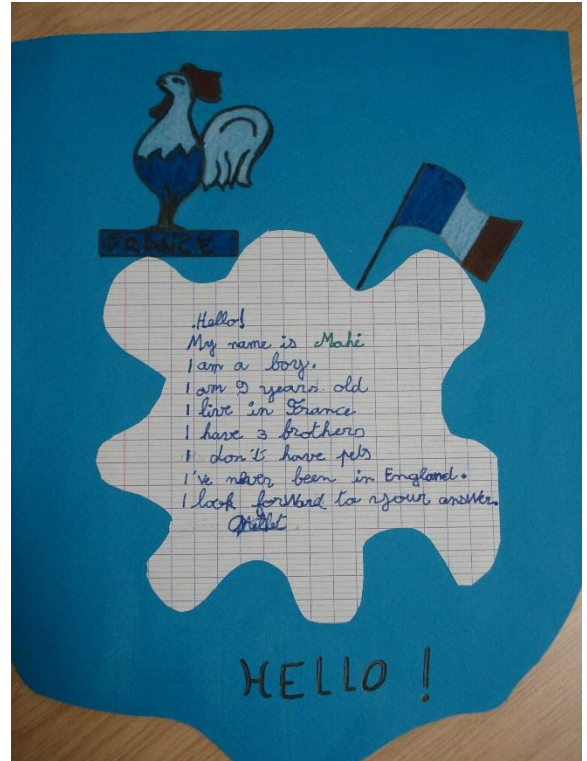 FRANCE
.Hello!
My name is Mahé
I am a boy.
I am 9 years old
I live in France
I have 3 brothers
I don't have pets
I've never been in England.
I look forward to your answer.
HELLO !